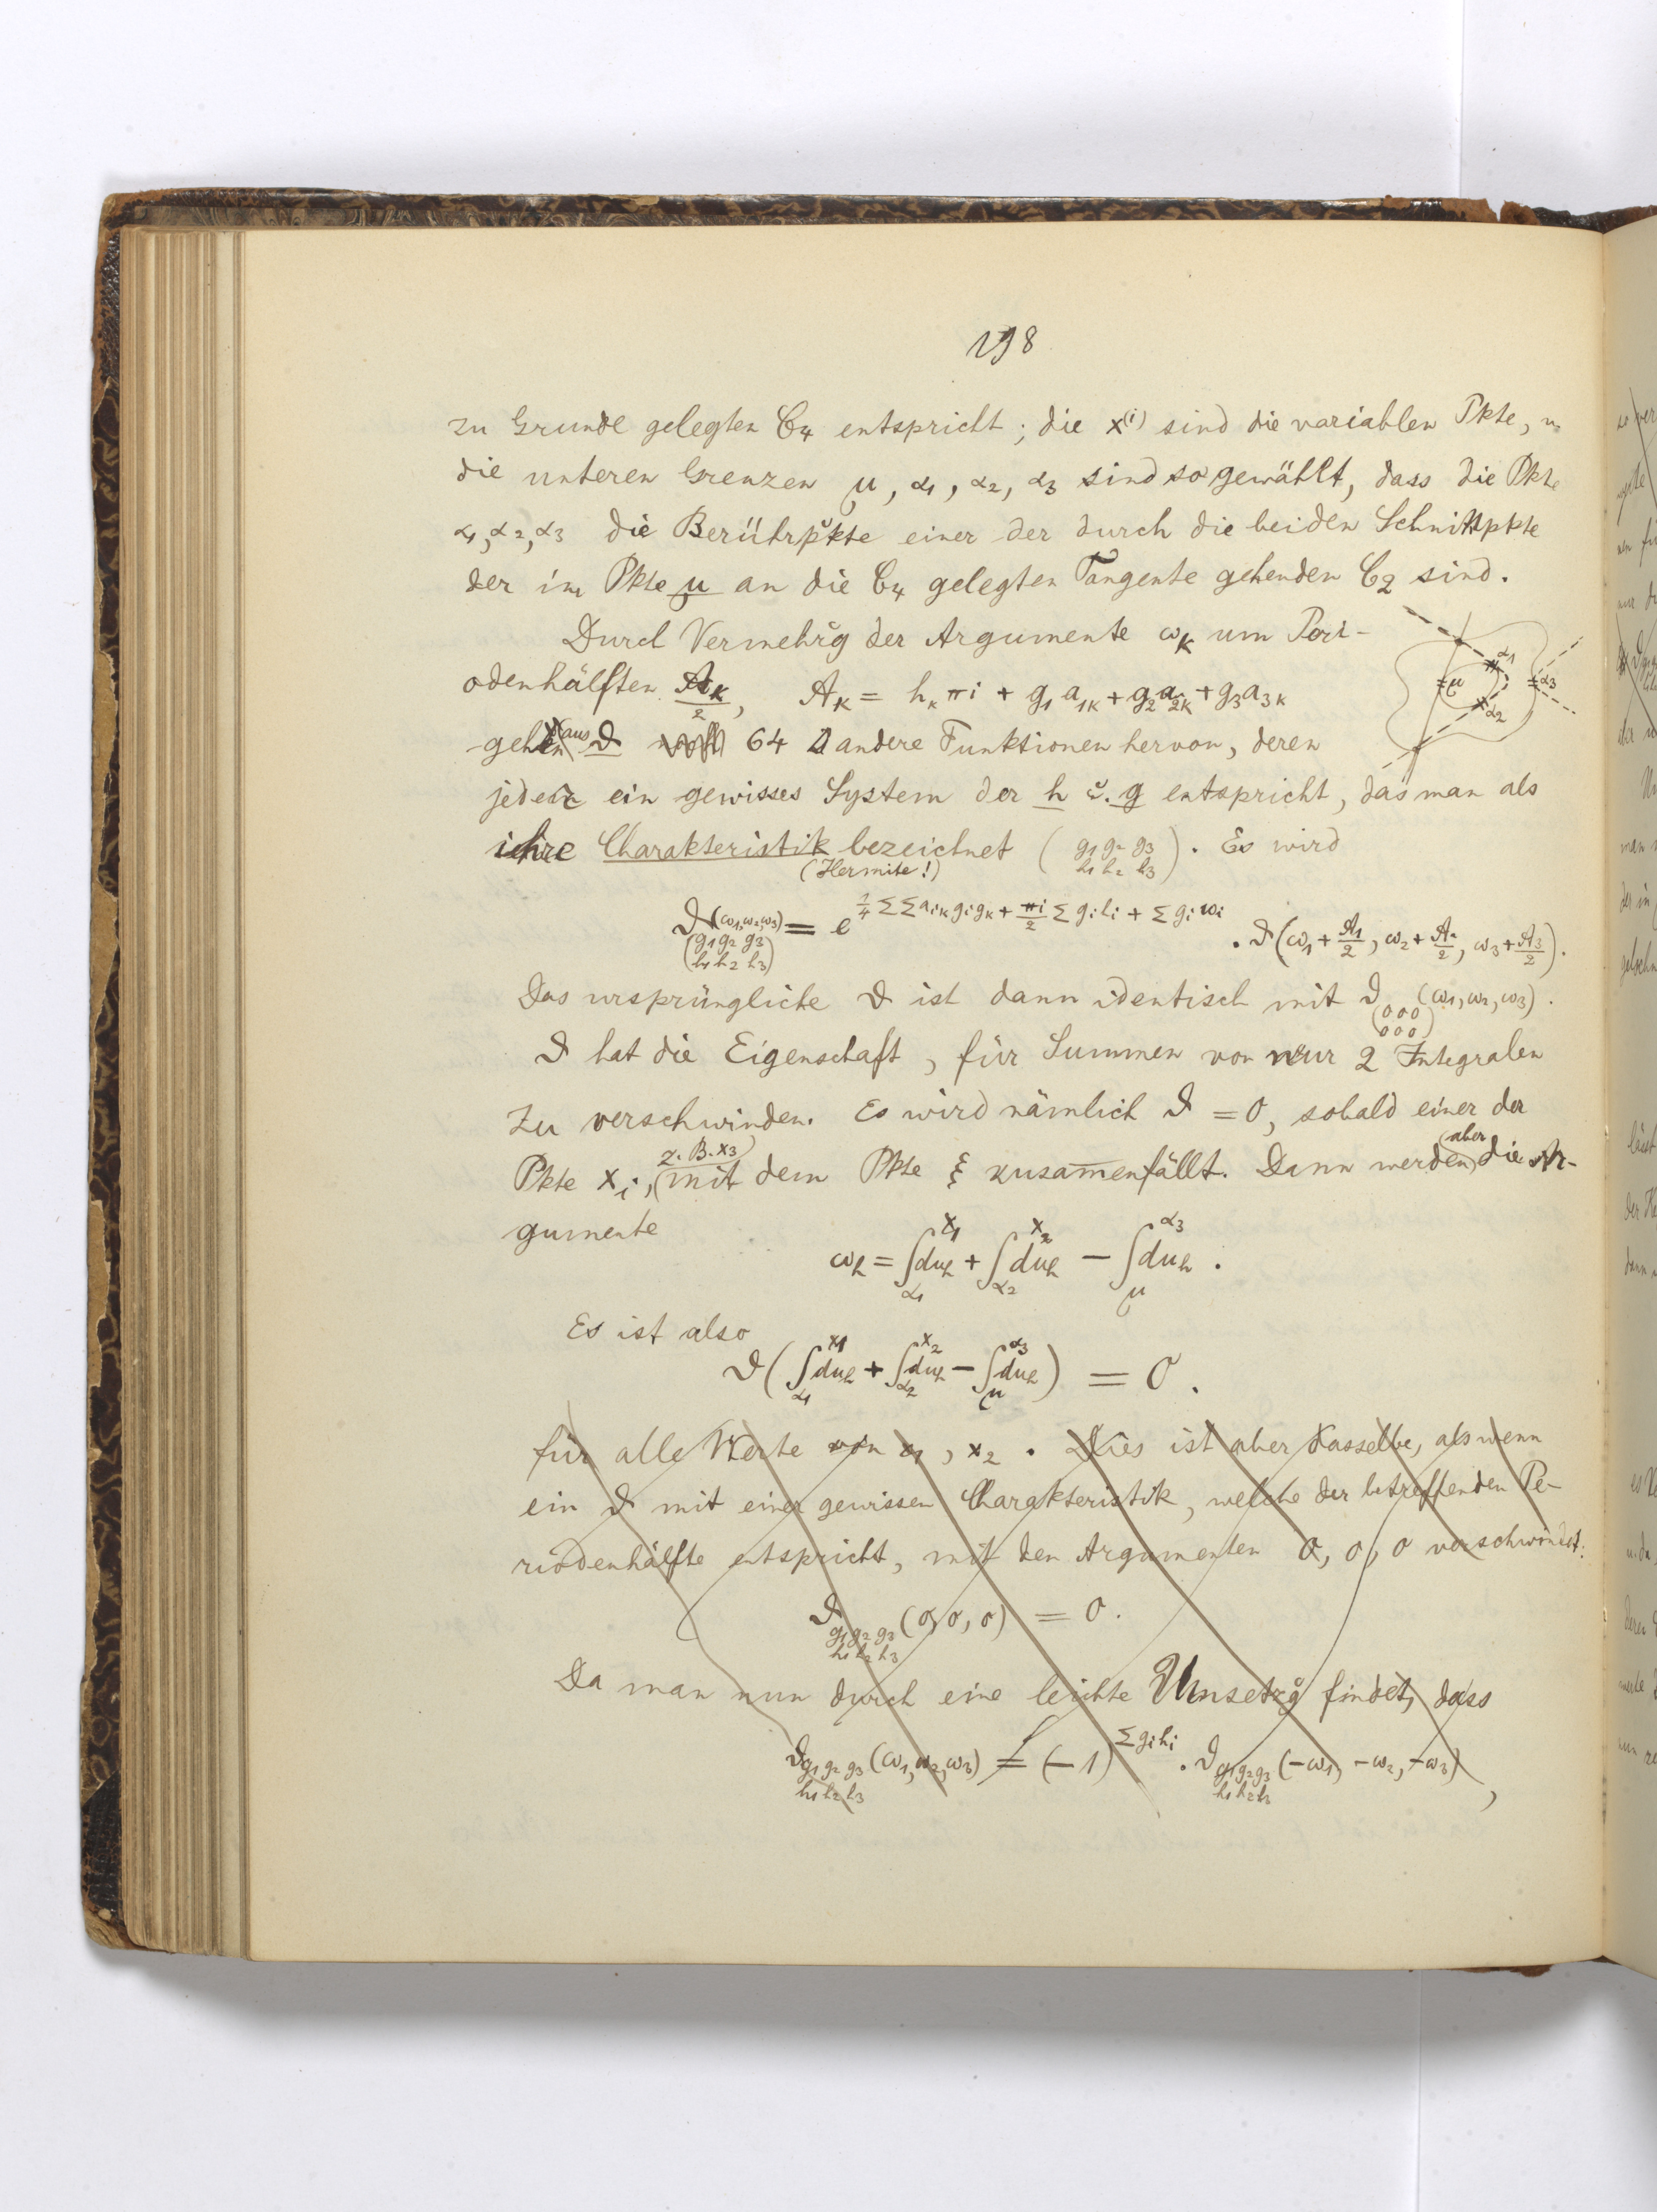 198
zu Grunde gelegten C₄ entspricht; die x⁽ⁱ⁾ sind die variablen Pkte, u.
die unteren Grenzen μ, α₁, α₂, α₃ sind so gewählt, dass die Pkte
α₁, α₂, α₃ die Berührpkte einer der durch die beiden Schnittpkte
der im Pkte μ an die C₄ gelegten Tangente gehenden C₂ sind.
Durch Vermehrg der Argumente ω_k um Peri-
odenhälften A_k/2, A_k = h_k πi + g₁a₁ₖ + g₂a₂ₖ + g₃a₃ₖ
α₁
μ
α₃
α₂
gehen aus ϑ 64 andere Funktionen hervor, deren
jeder ein gewisses System der h u. g entspricht, das man als
ihre Charakteristik bezeichnet (g₁ g₂ g₃ / h₁ h₂ h₃). Es wird
(Hermite!)
ϑ(ω₁,ω₂,ω₃) (g₁ g₂ g₃ / h₁ h₂ h₃) = e^{1/4 ΣΣ a_ik g_i g_k + πi/2 Σ g_i h_i + Σ g_i ω_i} · ϑ(ω₁ + A₁/2, ω₂ + A₂/2, ω₃ + A₃/2).
Das ursprüngliche ϑ ist dann identisch mit ϑ(000 / 000) (ω₁, ω₂, ω₃).
ϑ hat die Eigenschaft, für Summen von nur 2 Integralen
zu verschwinden. Es wird nämlich ϑ = 0, sobald einer der
Pkte x_i, z. B. x₃ mit dem Pkte ξ zusam̅enfällt. Dann werden aber die Ar-
gumente
ω_h = ∫_{α₁}^{x₁} du_h + ∫_{α₂}^{x₂} du_h − ∫_μ^{α₃} du_h.
Es ist also
ϑ(∫_{α₁}^{x₁} du_h + ∫_{α₂}^{x₂} du_h − ∫_μ^{α₃} du_h) = 0.
für alle Werte von x₁, x₂. Dies ist aber dasselbe, als wenn
ein ϑ mit einer gewissen Charakteristik, welche der betreffenden Pe-
riodenhälfte entspricht, mit den Argumenten 0, 0, 0 verschwindet:
ϑ g₁ g₂ g₃ / h₁ h₂ h₃ (0, 0, 0) = 0.
Da man nun durch eine leichte Umsetzg findet, dass
ϑ g₁ g₂ g₃ / h₁ h₂ h₃ (ω₁, ω₂, ω₃) = (−1)^{Σ g_i h_i} · ϑ g₁ g₂ g₃ / h₁ h₂ h₃ (−ω₁, −ω₂, −ω₃),